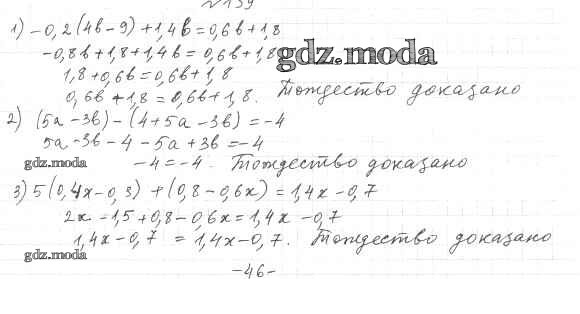 № 139
1) -0,2(4b-9)+1,4b=0,6b+1,8
-0,8b+1,8+1,4b=0,6b+1,8
gdz.moda
1,8+0,6b=0,6b+1,8
0,6b+1,8=0,6b+1,8. Тождество доказано
2) (5a-3b)-(4+5a-3b)=-4
5a-3b-4-5a+3b=-4
gdz.moda
-4=-4. Тождество доказано
3) 5(0,4x-0,3)+(0,8-0,6x)=1,4x-0,7
2x-1,5+0,8-0,6x=1,4x-0,7
1,4x-0,7=1,4x-0,7. Тождество доказано
gdz.moda
-46-